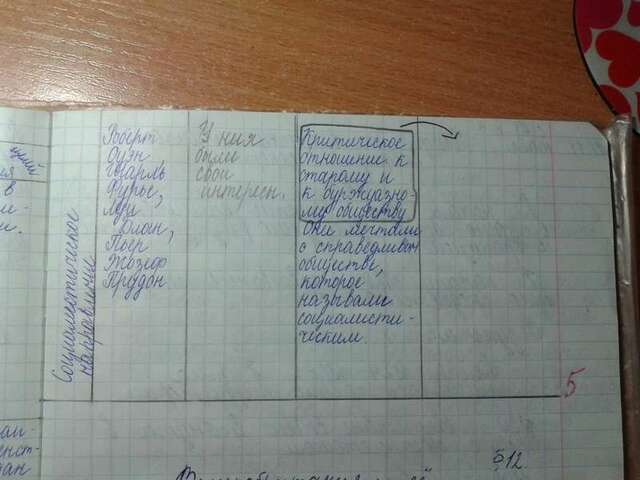 Социалистическое
направление
Роберт
Оуэн
Шарль
Фурье,
Луи
Блан,
Пьер
Жозеф
Прудон
У ния
были
свои
интересн.
Критическое
отношение к
старому и
к буржуазно-
му обществу
Они мечтали
о справедливом
обществе,
которое
называли
социалисти-
ческим.
5
§12